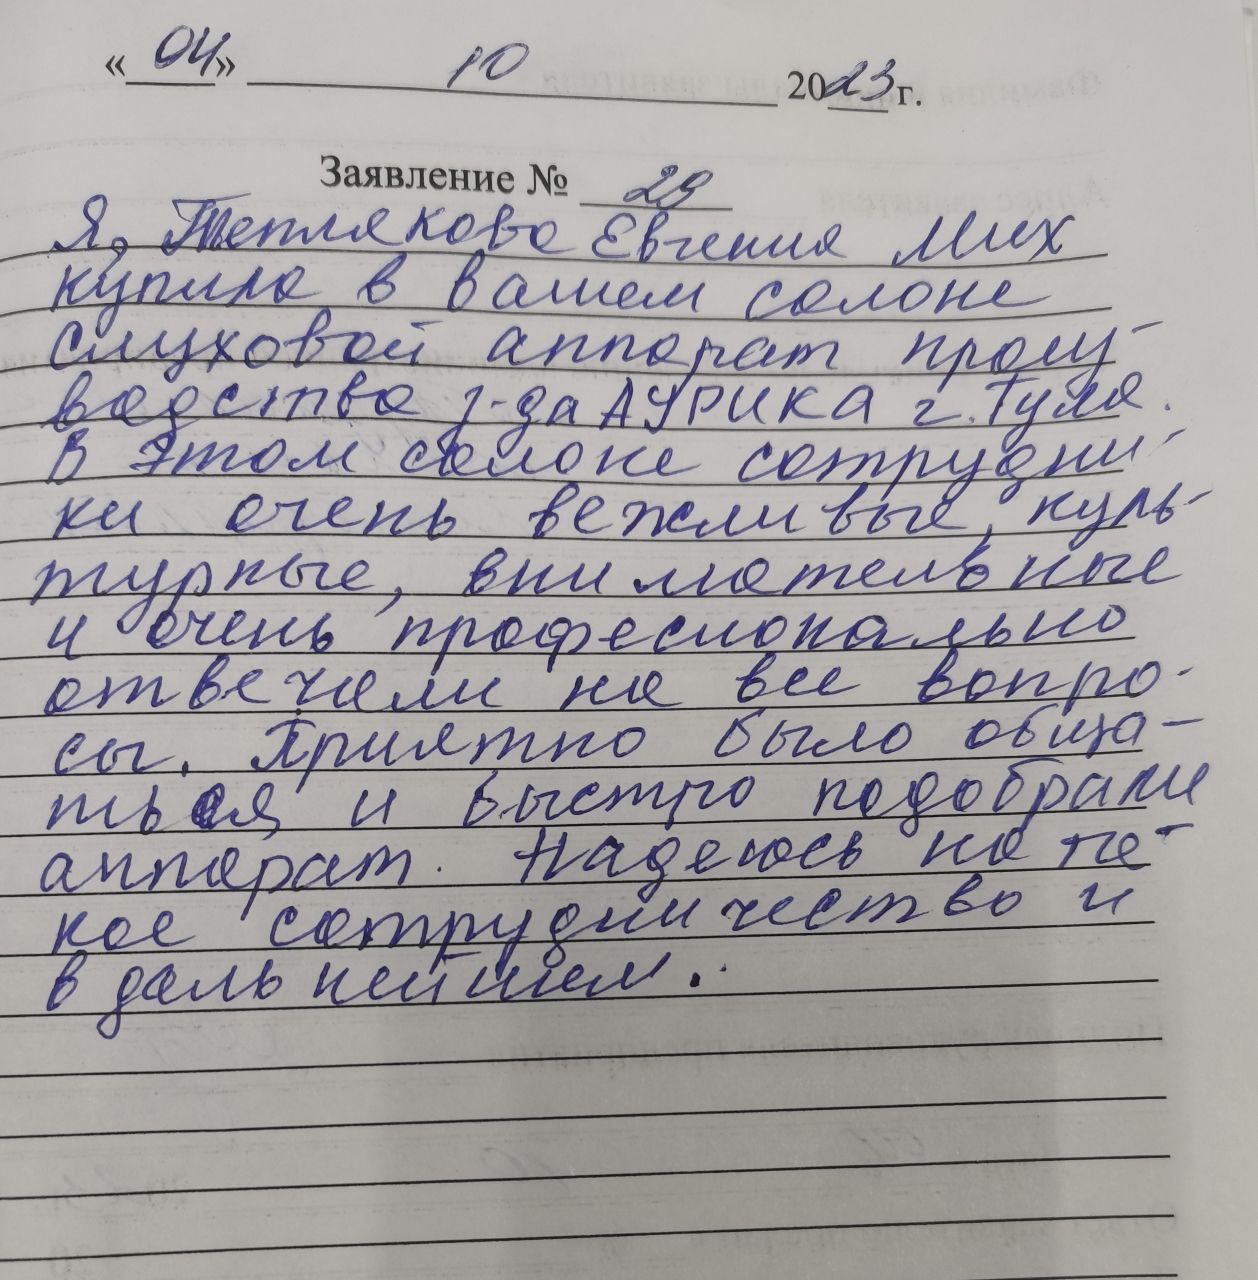 «04» 10 2023 г.
Заявление № 29
Я, Теплякова Евгения Мих
купила в вашем салоне
слуховой аппарат произ-
водства з-да АУРИКА г. Тула.
В этом салоне сотрудни-
ки очень вежливые, куль-
турные, внимательные
и очень професионально
отвечали на все вопро-
сы. Приятно было обща-
ться и быстро подобрали
аппарат. Надеюсь на та-
кое сотрудничество и
в дальнейшем.